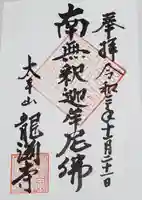 奉拝 令和二年十一月二十一日
南無釈迦牟尼佛
太平山 龍淵寺